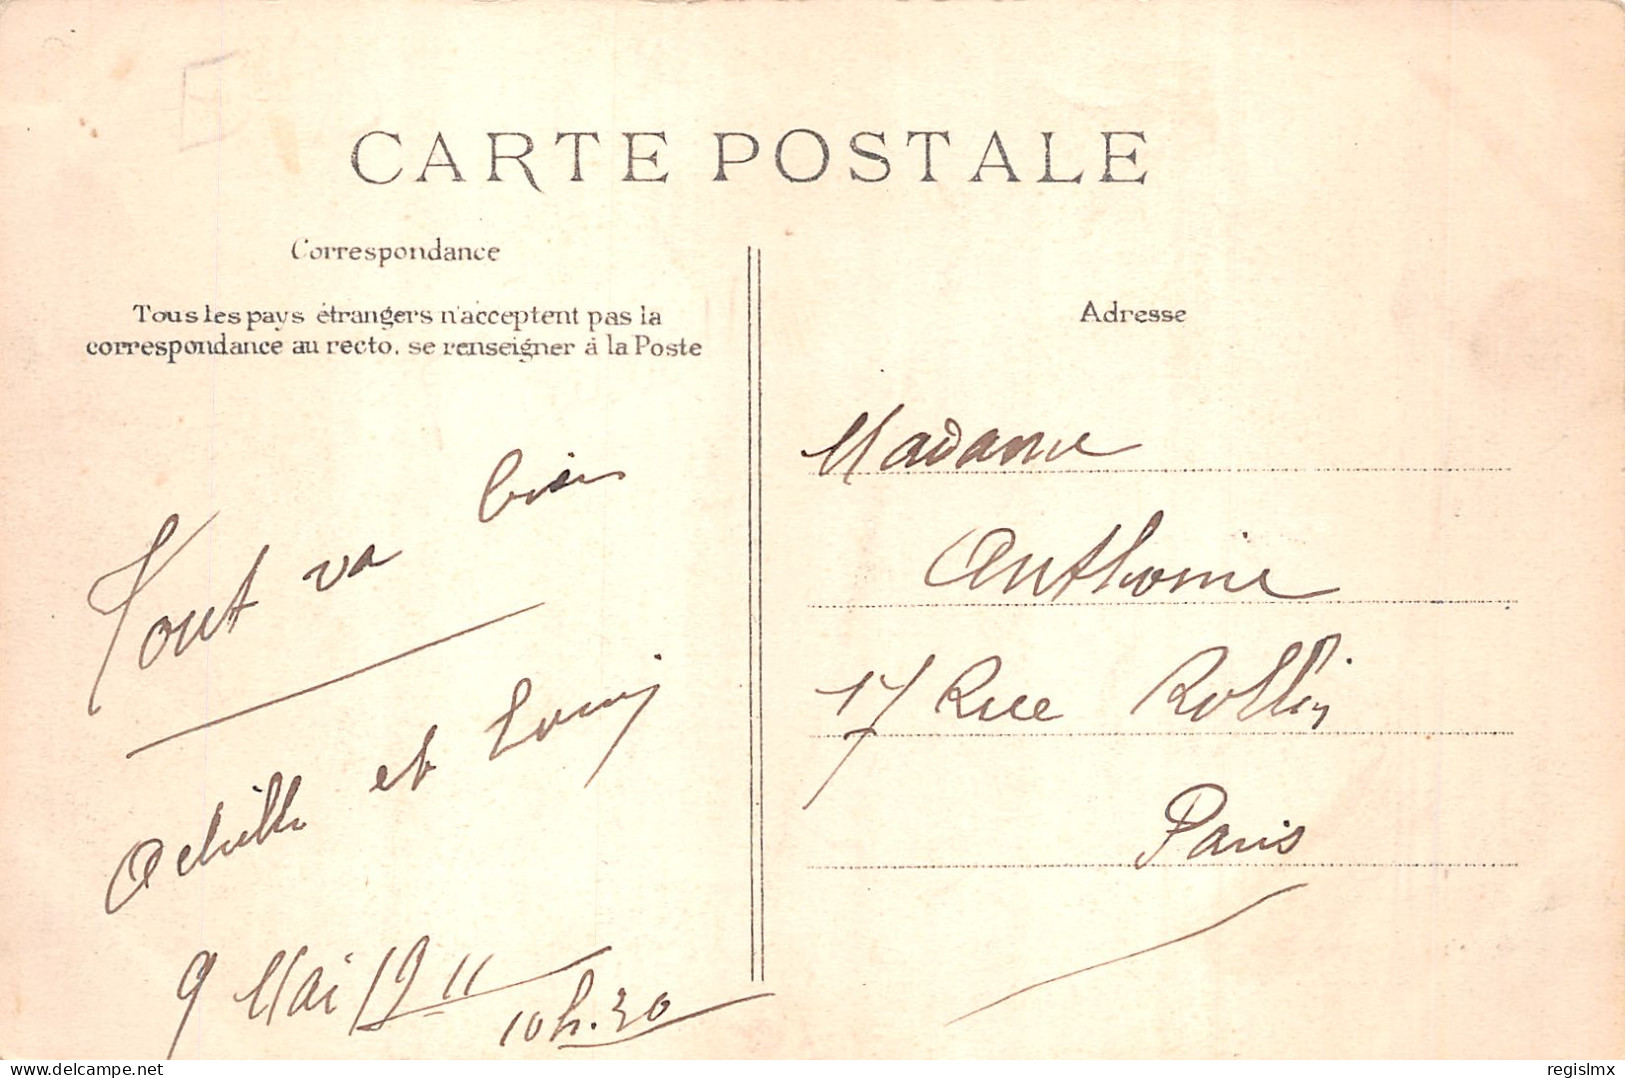 CARTE POSTALE
Correspondance
Tous les pays étrangers n'acceptent pas la
correspondance au recto, se renseigner à la Poste
Tout va bien
Achille et Louis
9 Mai 1911
10h.30
Adresse
Madame
Anthoine
17 Rue Rollin
Paris
delcampe.net
regislmx